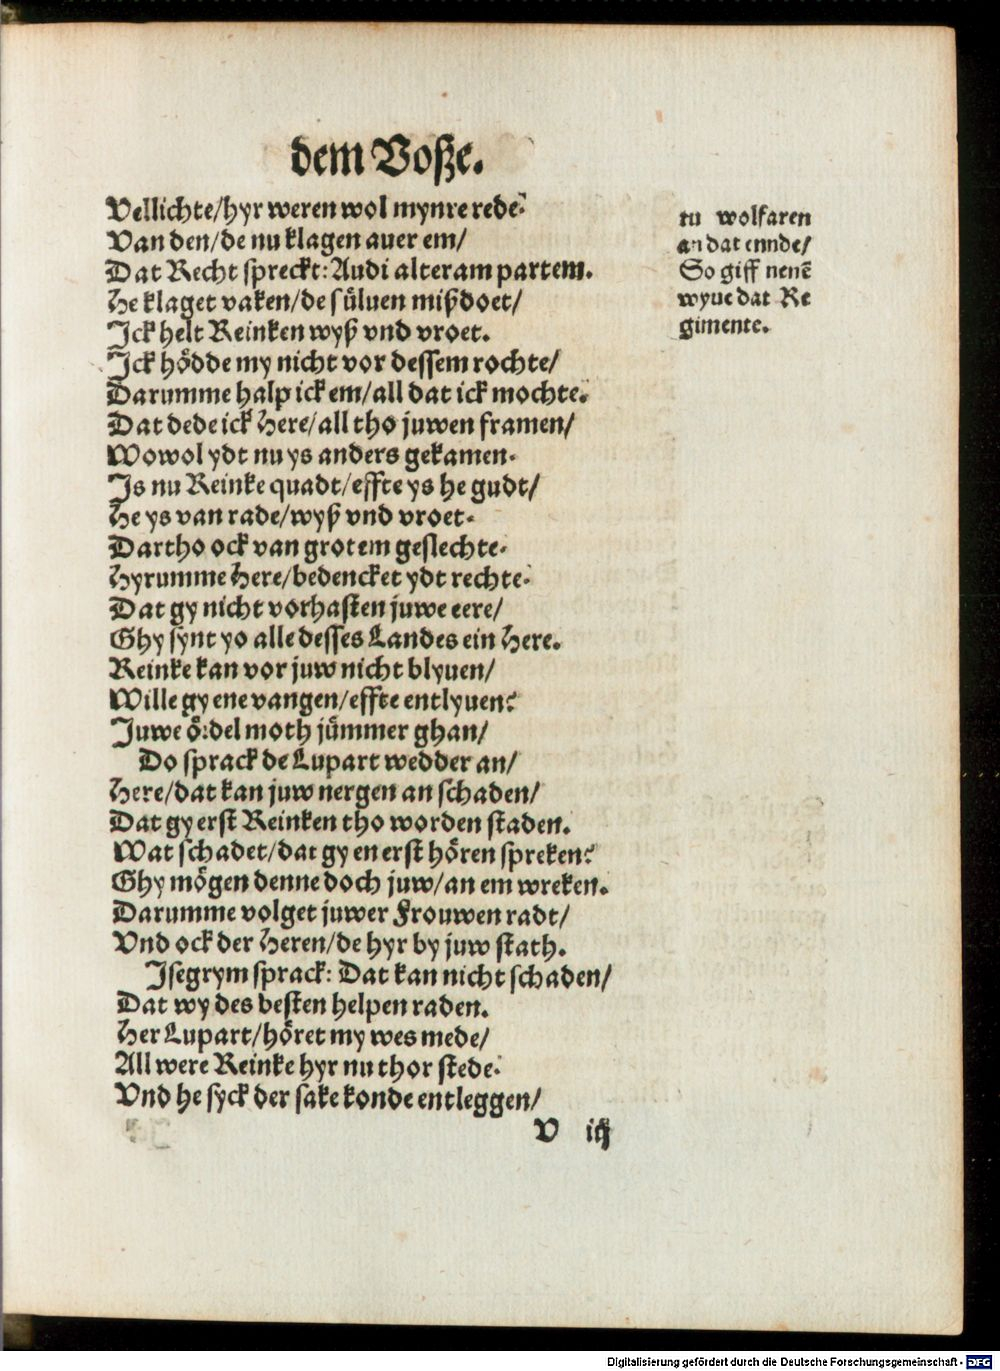 dem Voſze.
Vellichte/hyr weren wol mynre rede.
Van den/de nu klagen auer em/
Dat Recht spreckt: Audi alteram partem.
He klaget vaken/de sůluen miſzdoet/
Ick helt Reinken wyſz vnd vroet.
Ick hŏdde my nicht vor dessem rochte/
Darumme halp ick em/all dat ick mochte.
Dat dede ick Here/all tho juwen framen/
Wowol ydt nu ys anders gekamen.
Is nu Reinke quadt/effte ys he gudt/
He ys van rade/wyſz vnd vroet.
Dartho ock van grotem geslechte.
Hyrumme Here/bedencket ydt rechte.
Dat gy nicht vorhasten juwe eere/
Ghy synt yo alle desses Landes ein Here.
Reinke kan vor juw nicht blyuen/
Wille gy ene vangen/effte entlyuen?
Juwe ŏrdel moth jůmmer ghan/
Do sprack de Lupart wedder an/
Here/dat kan juw nergen an schaden/
Dat gy erst Reinken tho worden staden.
Wat schadet/dat gy en erst hŏren spreken?
Ghy mŏgen denne doch juw/an em wreken.
Darumme volget juwer Frouwen radt/
Vnd ock der Heren/de hyr by juw stath.
Isegrym sprack: Dat kan nicht schaden/
Dat wy des besten helpen raden.
Her Lupart/hŏret my wes mede/
All were Reinke hyr nu thor stede.
Vnd he syck der sake konde entleggen/
V iij
tu wolfaren
an dat ennde/
So giff nenē
wyue dat Re
gimente.
Digitalisierung gefördert durch die Deutsche Forschungsgemeinschaft - DFG